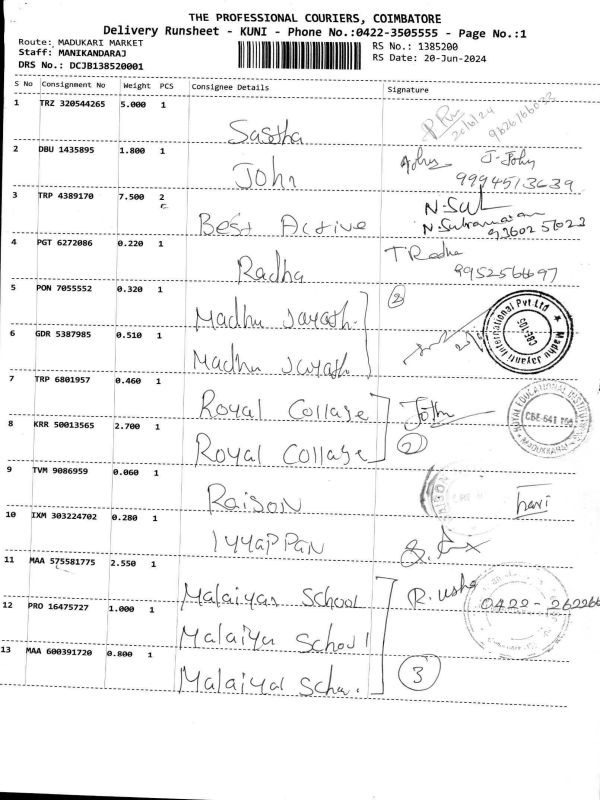 THE PROFESSIONAL COURIERS, COIMBATORE
Delivery Runsheet - KUNI - Phone No.:0422-3505555 - Page No.:1
Route: MADUKARI MARKET RS No.: 1385200
Staff: MANIKANDARAJ RS Date: 20-Jun-2024
DRS No.: DCJB138520001
S No Consignment No Weight PCS Consignee Details Signature
1 TRZ 320544265 5.000 1
Sastha 20/6/24
2 DBU 1435895 1.800 1
John J-John
9994513639
3 TRP 4389170 7.500 2
Best Active N-Subramanian
4 PGT 6272086 0.220 1
Radha T Radha
9952566697
5 PON 7055552 0.320 1
Madhu Jayath 2
Madhu Jayanti International Pvt Ltd
CBE-105
6 GDR 5387985 0.510 1
Madhu Jayath
7 TRP 6801957 0.460 1
Royal Collage
CBE-641 105
8 KRR 50013565 2.700 1
Royal Collage 2
9 TVM 9086959 0.060 1
Raison hari
10 IXM 303224702 0.280 1
IYYAPPAN
11 MAA 575581775 2.550 1
Malaiyar School R. usha
12 PRO 16475727 1.000 1
Malaiyar School
13 MAA 600391720 0.800 1
Malaiyar 3